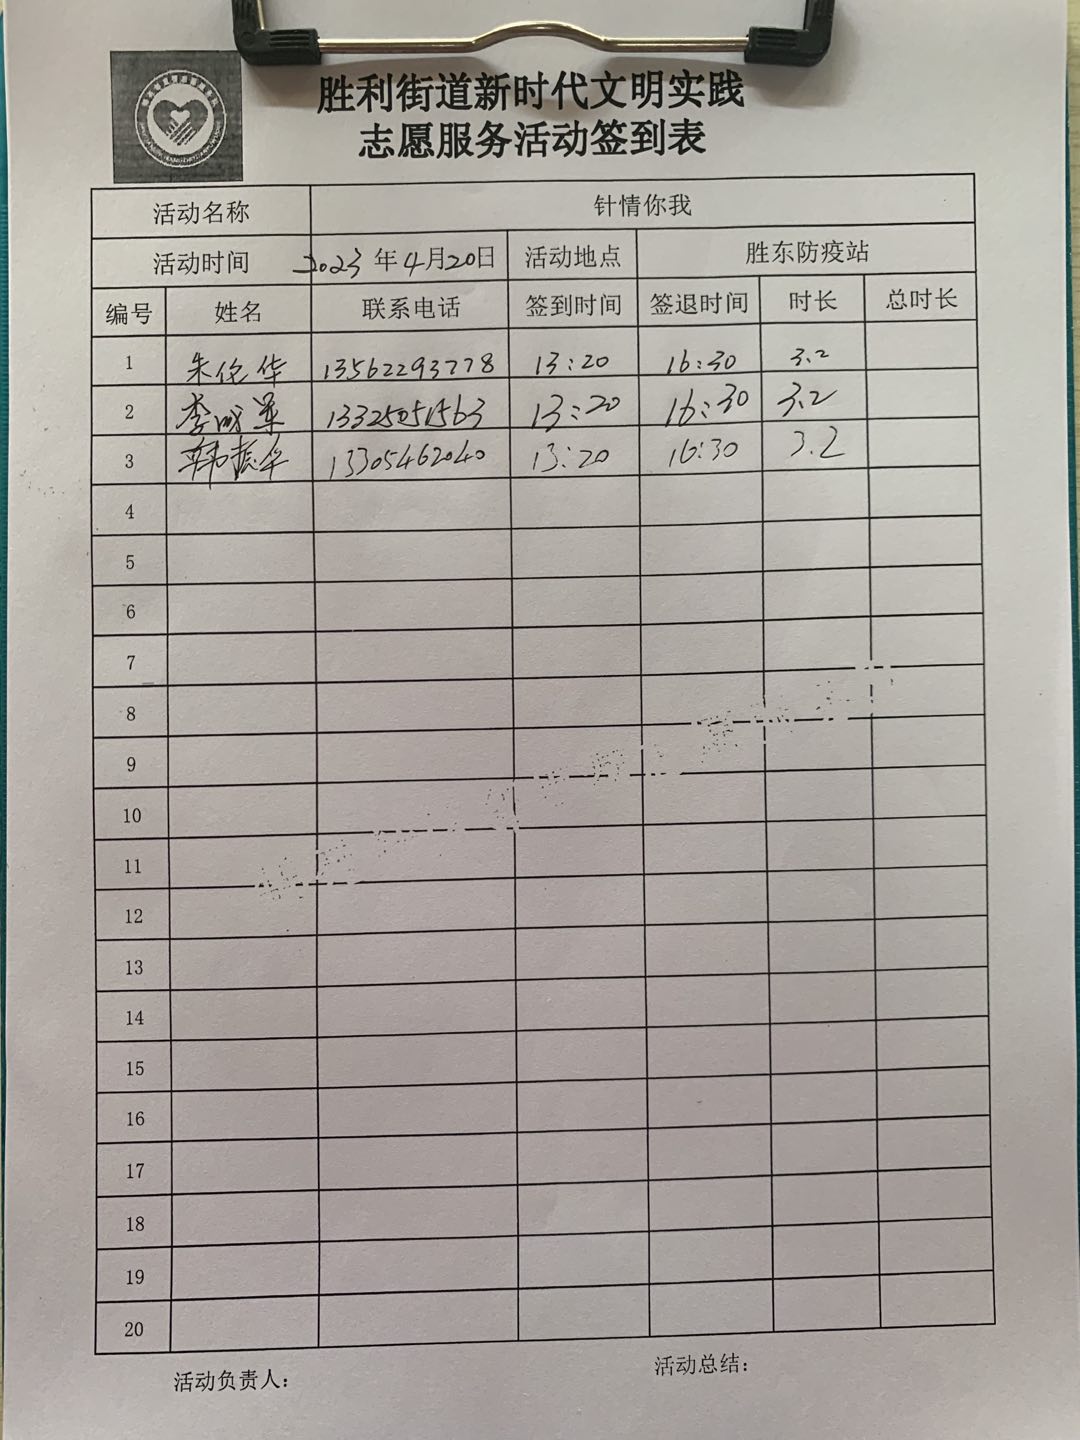 胜利街道新时代文明实践
志愿服务活动签到表
活动名称 针情你我
活动时间 2023年4月20日 活动地点 胜东防疫站
编号 姓名 联系电话 签到时间 签退时间 时长 总时长
1 朱伦华 13562293778 13:20 16:30 3.2
2 李明军 13325051563 13:20 16:30 3.2
3 韩振华 13305462040 13:20 16:30 3.2
4
5
6
7
8
9
10
11
12
13
14
15
16
17
18
19
20
活动负责人: 活动总结: